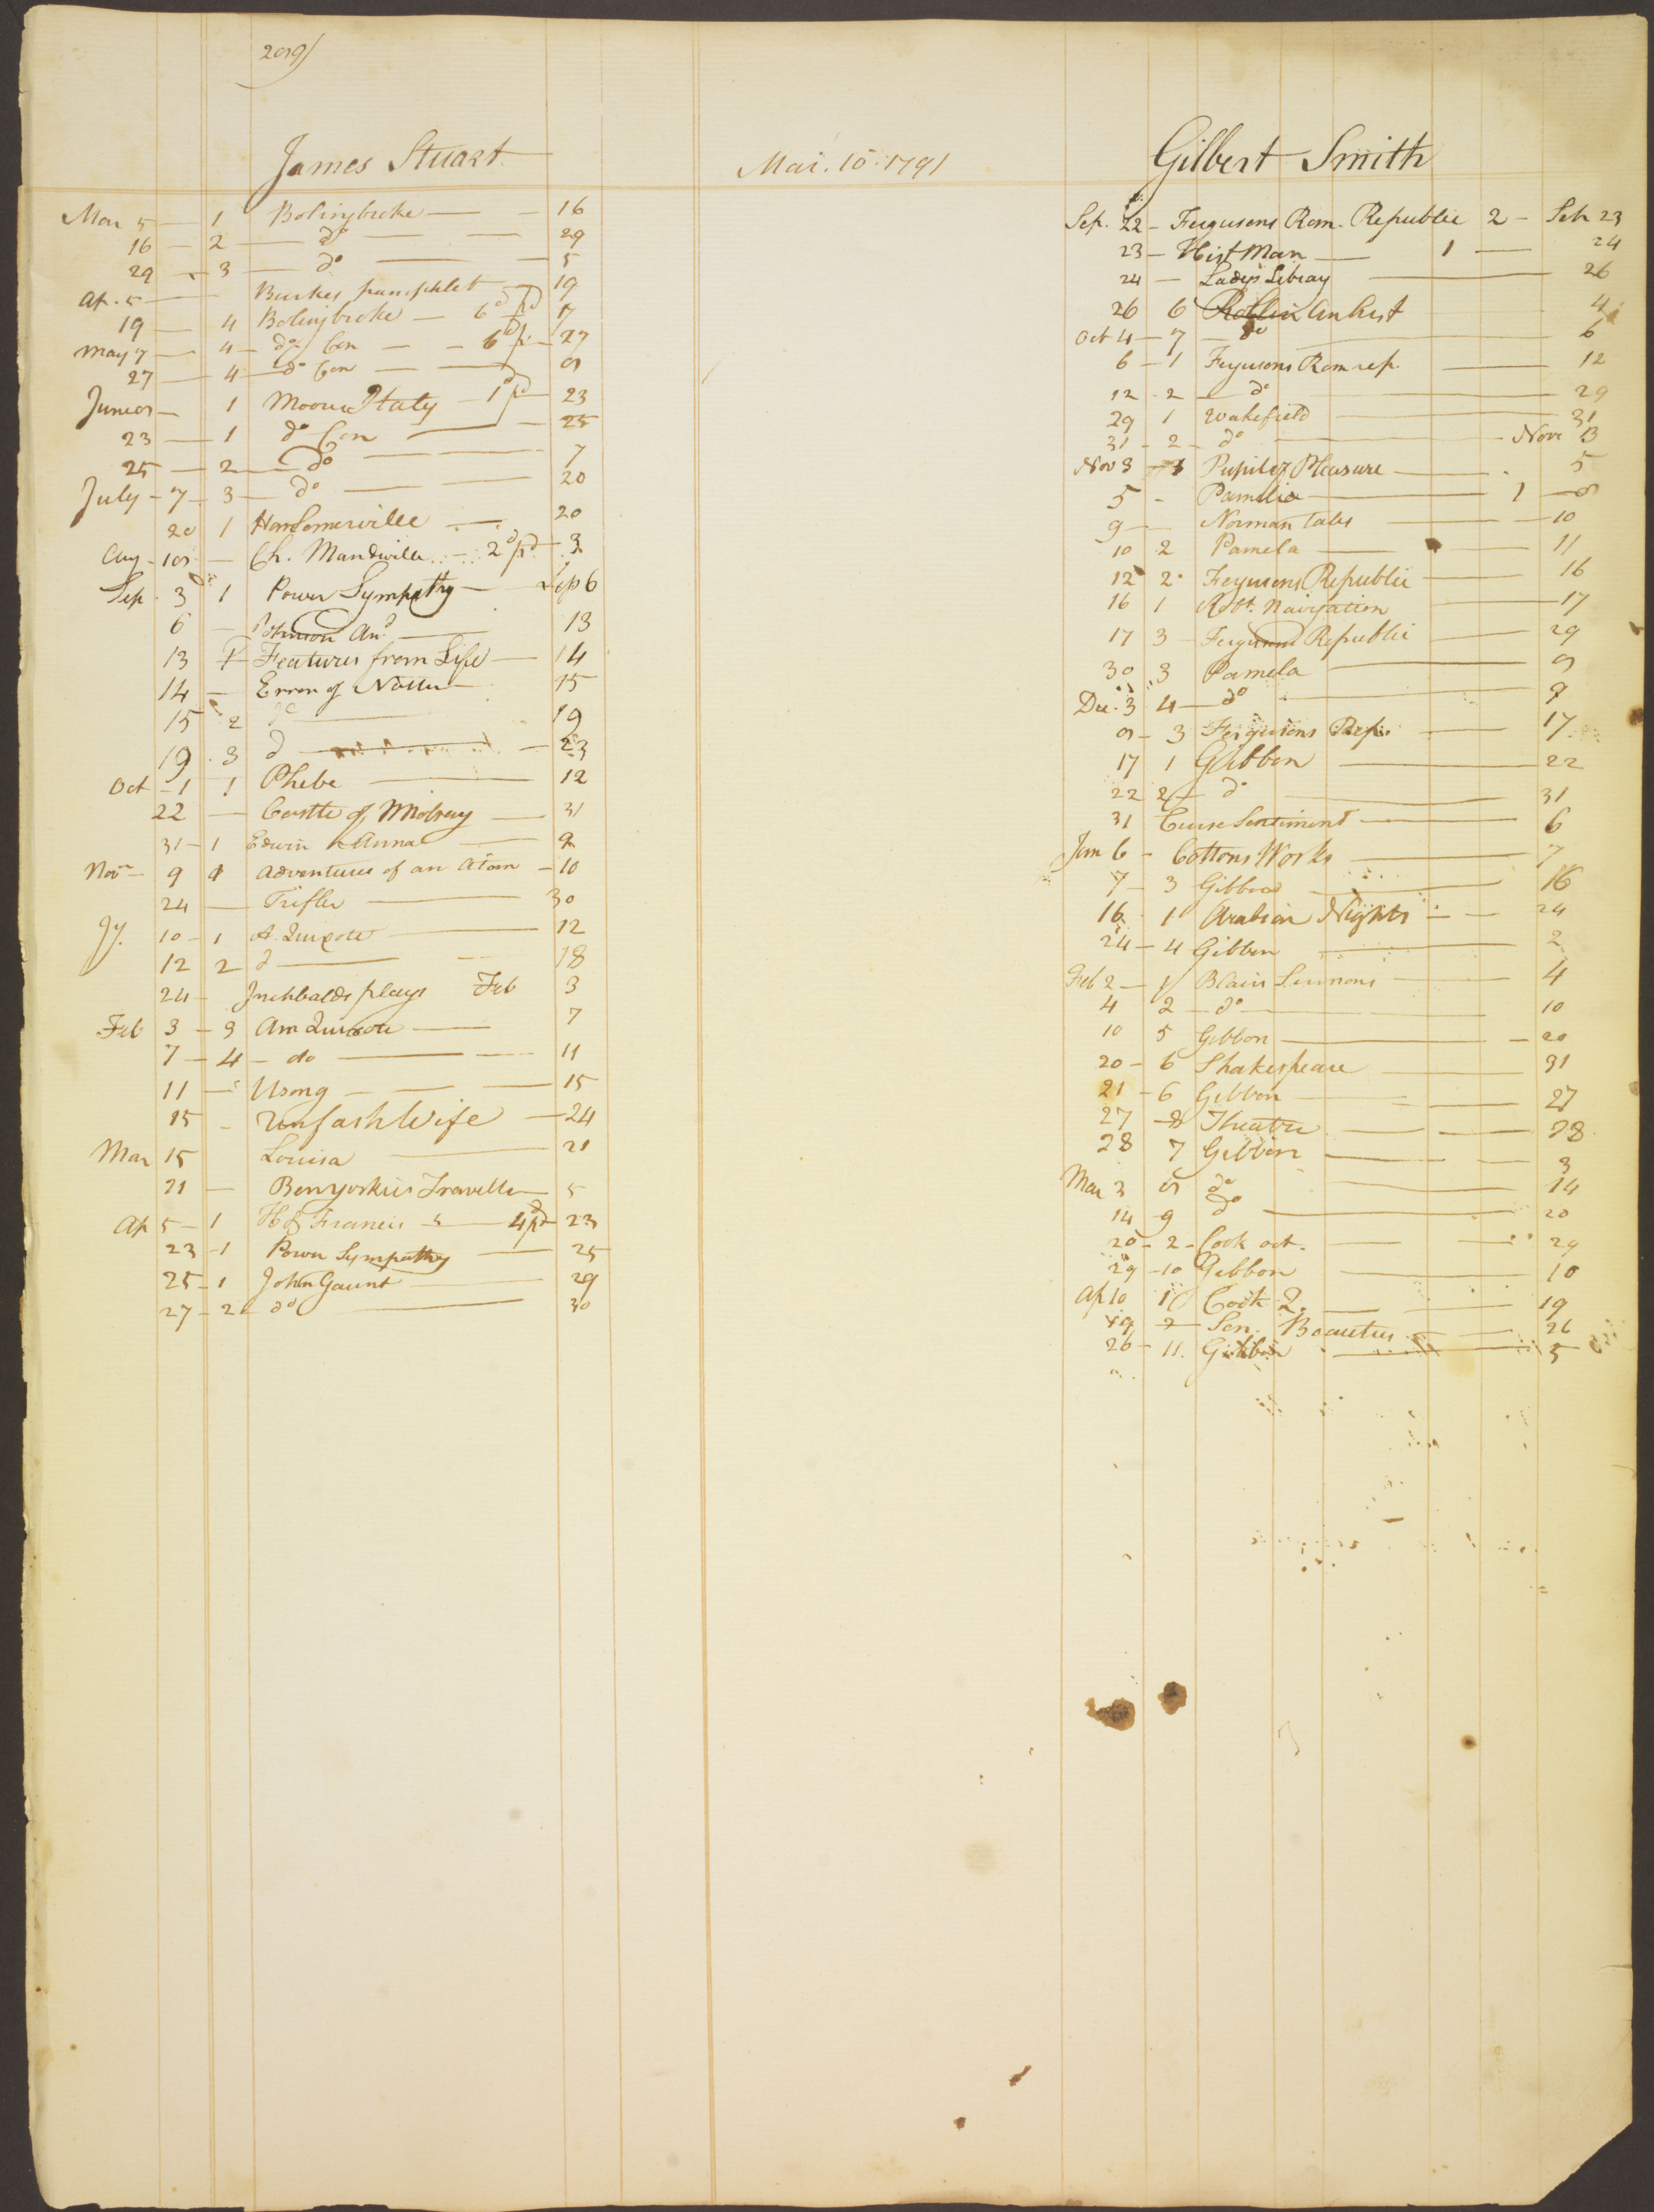 209
James Stuart
Mar 5 — 1 Bolingbroke — — 16
16 — 2 — do — — 29
29 — 3 — do — — 5
Ap. 5 — Burkes pamphlet — 19
19 — 4 Bolingbroke — 6d pd 7
May 7 — 4 — do Con — — 6d p — 27
27 — 4 — do Con — — 8
June 8 — 1 Moores Italy — 1d pd — 23
23 — 1 do Con — — 25
25 — 2 — do — — 7
July — 7 — 3 — do — — 20
20 1 Han Somerville — 20
Aug. 18 — Ch. Mandville — 2d pd — 3
Sep. 3 1 Power Sympathy — Sep 6
6 — An — 13
13 Features from Life — 14
14 — Errors of Nature — 15
15 2 do — 19
19 . 3 d — 23
Oct — 1 1 Phebe — 12
22 — Castle of Mobray — 31
31 — 1 Edwin & Anna — 9
Nov — 9 1 Adventures of an Atom — 10
24 — Trifler — 30
Jy. 10 — 1 A. Quixote — 12
12 2 d — 18
24 — Inchbalds plays Feb 3
Feb 3 — 3 Am Quixote — 7
7 — 4 — do — 11
11 — Usong — — 15
15 — Unfash Wife — 24
Mar 15 Louisa — 21
21 — Benyoskies Travells — 5
Ap 5 — 1 H of Francis — 4pd — 23
23 — 1 Power Sympathy — 25
25 — 1 John Gaunt — 29
27 — 2 — do — 30
Mai. 15. 1791
Gilbert Smith
Sep. 22 — Fergusons Rom. Republic 2 — Seb 23
23 — Hist Man — 1 — 24
24 — Ladys Libray — 26
26 6 Rollin An hist 4
Oct 4 — 7 — do — 6
6 — 1 Fergusons Rom rep. — 12
12 . 2 — do — 29
29 1 Wakefield — 31
31 — 2 — do — Nov 3
Nov 3 — 1 Pupil of Pleasure — 5
5 — Pamelia — 1 — 8
9 — Norman Tales — 10
10 2 Pamela — 11
12 2 Fergusons Republic — 16
16 1 Robt. Navigation — 17
17 3 — Fergusons Republic — 29
30 . 3 Pamela — 8
Dec. 3 4 — do — 9
8 — 3 Fergusons Rep. — 17
17 1 Gibbon — 22
22 2 — do — 31
31 Curse Sentiment — 6
Jan 6 — Cottons Works — 7
7 — 3 Gibbon — 16
16 . 1 Arabian Nights — — 24
24 — 4 Gibbon — 2
Feb 2 — 1 Blairs Sermons — 4
4 2 — do — 10
10 5 Gibbon — 20
20 — 6 Shakespeare — 21
21 — 6 Gibbon — — 27
27 — 8 Theatre — — 28
28 7 Gibbon — — 3
Mar 3 8 do — 14
14 — 9 do — 20
20 — 2 — Cook oct. — — 29
29 — 10 Gibbon — 10
Ap 10 10 Cook 2. — — 19
19 — 2 — Sen. Beauties — 26
26 — 11. Gibbon — 5